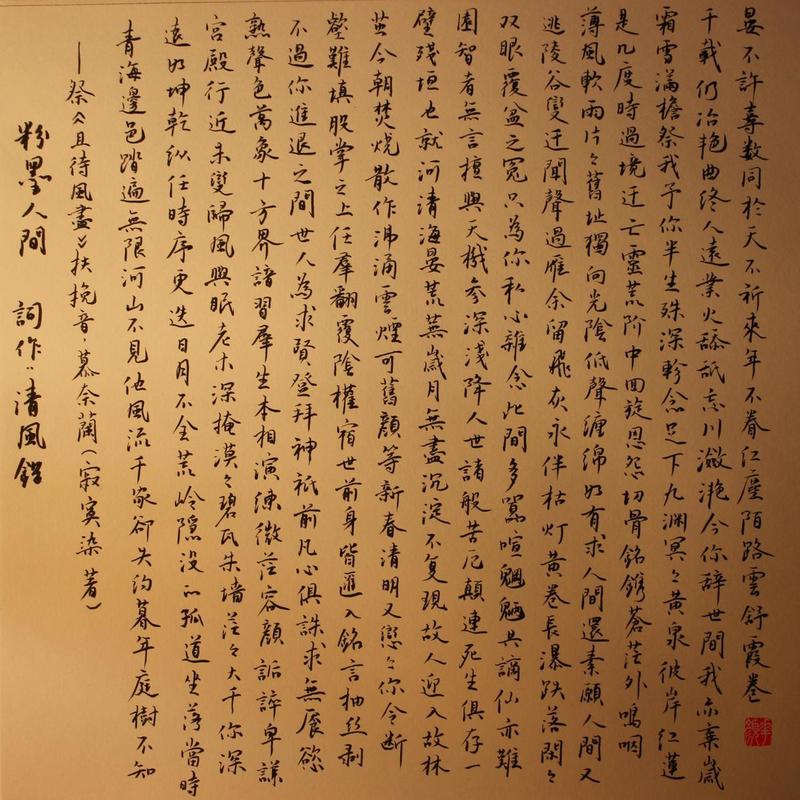 晏不許壽數同於天不祈來年不眷红塵陌路雲舒霞卷
千載仍冶艳曲终人遠業火舔舐忘川潋滟今你辞世間我亦棄歲
霜雪滿檐祭我予你半生殊深軫念足下九渊冥々黄泉彼岸红蓮
是几度時過境迁亡靈荒阶中回旋恩怨切骨銘鐫蒼茫外鳴咽
薄風軟雨片々舊址獨向光陰低聲缠绵如有求人間還素願人間又
逃陵谷變迁聞聲過雁余留飛灰永伴枯灯黄卷長瀑跌落閑々
双眼覆盆之冤只為你私心雜念此間多罵喧魍魎共謫仙亦難
圄智者無言檀興天機参深淺降人世諸般苦厄顛連死生俱存一
壁殘垣也就河清海晏荒蕪歲月無盡沉淀不复現故人迎入故林
茧今朝焚燒散作沸涌雲煙可舊顏等新春清明又戀々你令断
壑難填股掌之上任羣翻覆陰權宿世前身皆匯入銘言抽丝剥
不過你進退之間世人為求賢登拜神祇前凡心俱誅求無厭慾
熟聲色萬象十方界諸習羣生本相演练微茫容顏詬誶卑謙
宫殿行近未變歸風與眠老木深掩漠々碧瓦朱墙茫々大千你深
遠如坤乾纵任時序更迭日月不全荒岭隱没的孤道坐落當時
青海邊邑踏遍無限河山不見他風流千家卻失約暮年庭樹不知
—祭《且待風盡》扶挽音·慕奈蘭(寂寞染 著)
粉墨人間 詞作：清風